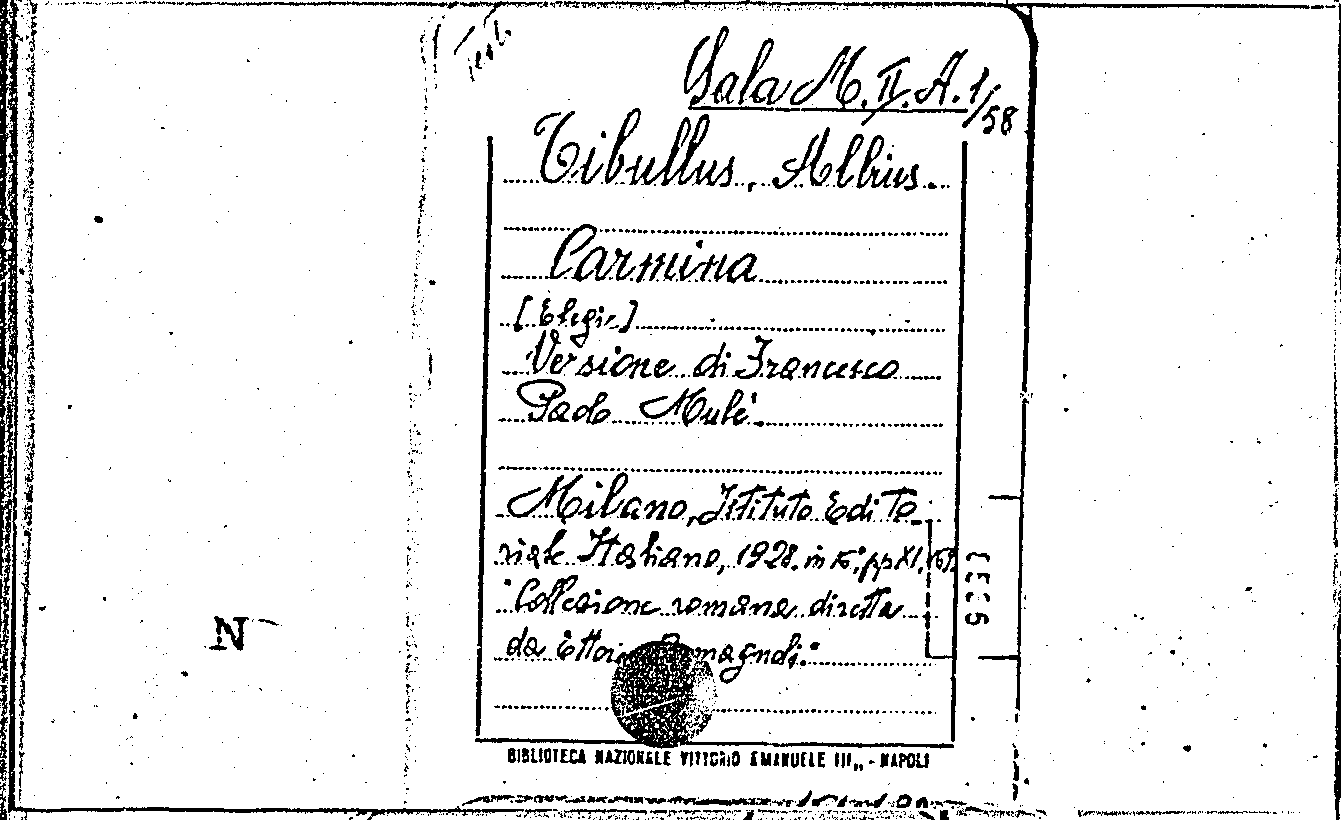 Testi
Sala M. II. A. 1/58
Tibullus, Albius.
Carmina
[Elegie]
Versione di Francesco
Paolo Mulè.
Milano, Istituto Edito
riale Italiano, 1928. in 16°, pp XI,
"Collezione romana diretta
da Ettore Romagnoli."
BIBLIOTECA NAZIONALE VITTORIO EMANUELE III,, - NAPOLI
N